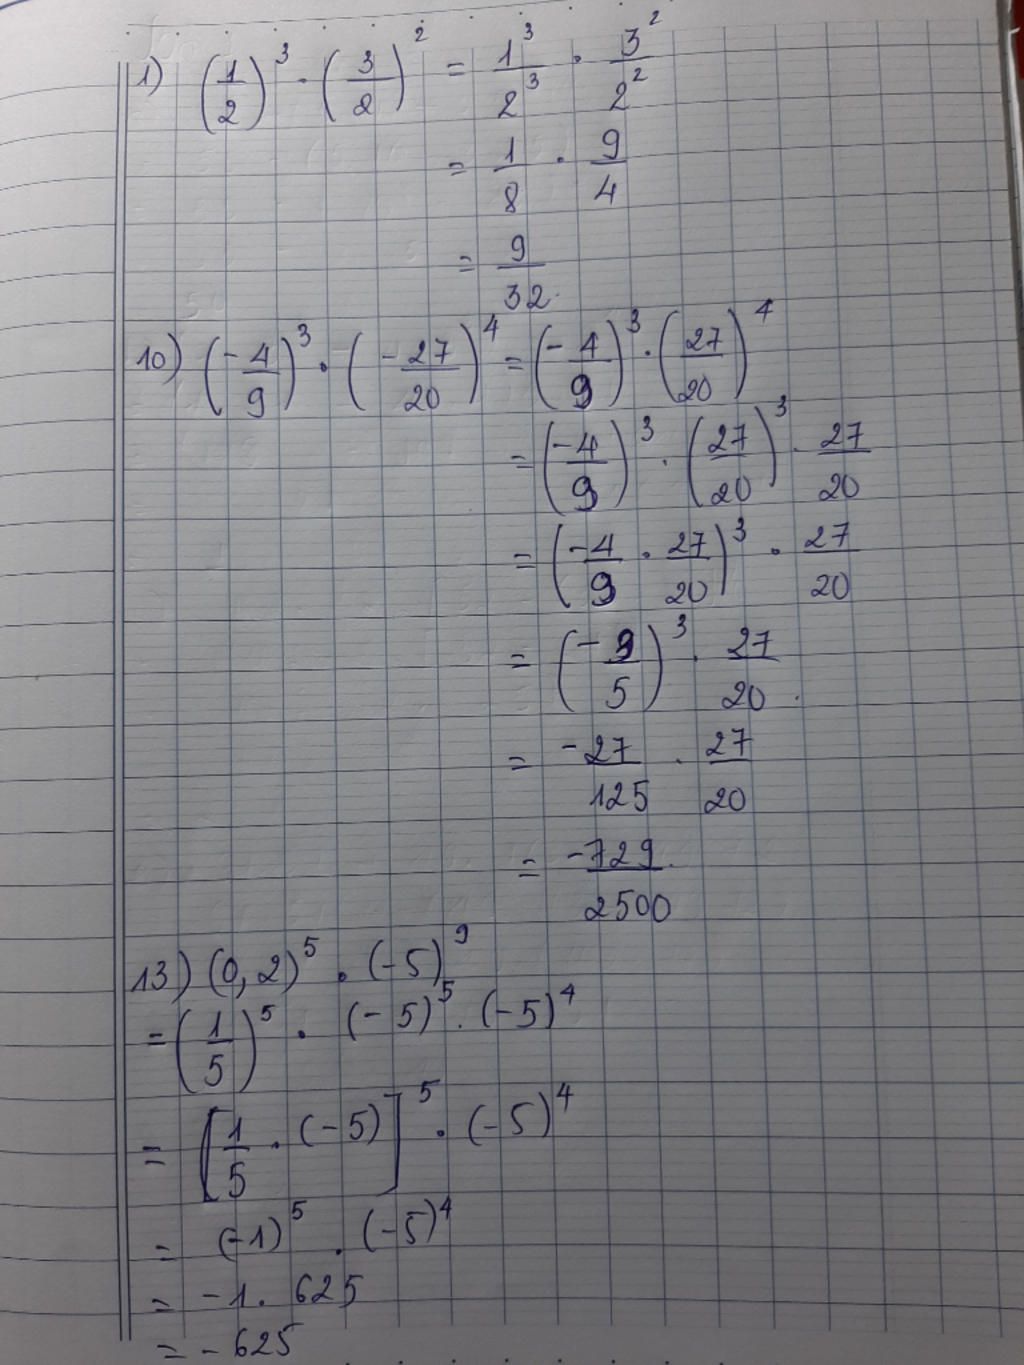 1) (1/2)³ · (3/2)² = 1³/2³ · 3²/2²
= 1/8 · 9/4
= 9/32.
10) (-4/9)³ · (-27/20)⁴ = (-4/9)³ · (27/20)⁴
= (-4/9)³ · (27/20)³ · 27/20
= (-4/9 · 27/20)³ · 27/20
= (-3/5)³ · 27/20.
= -27/125 · 27/20
= -729/2500
13) (0,2)⁵ · (-5)⁹
= (1/5)⁵ · (-5)⁵ · (-5)⁴
= [1/5 · (-5)]⁵ · (-5)⁴
= (-1)⁵ · (-5)⁴
= -1 · 625
= -625